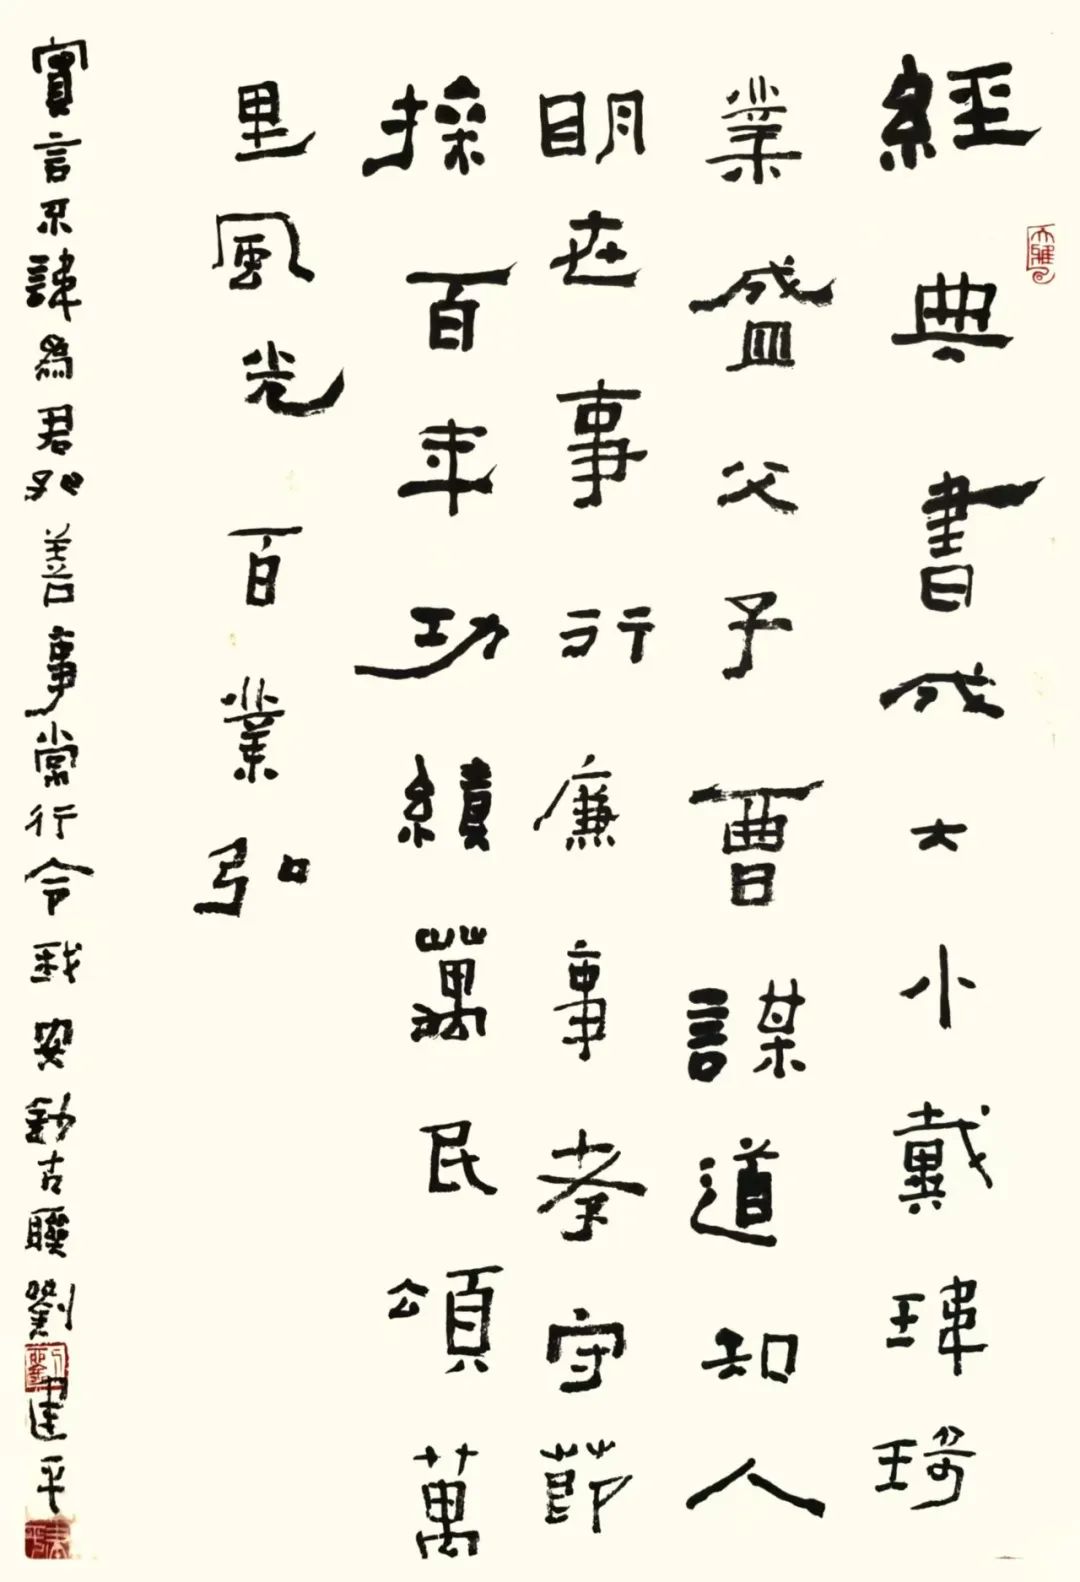 經典書成大小戴瑋琦
業盛父子曹謀道知人
明世事行廉事孝守節
採百年功績萬民頌萬
里風光百業弘
實言不諱為君知善事常行令我安勤古聯劉建平